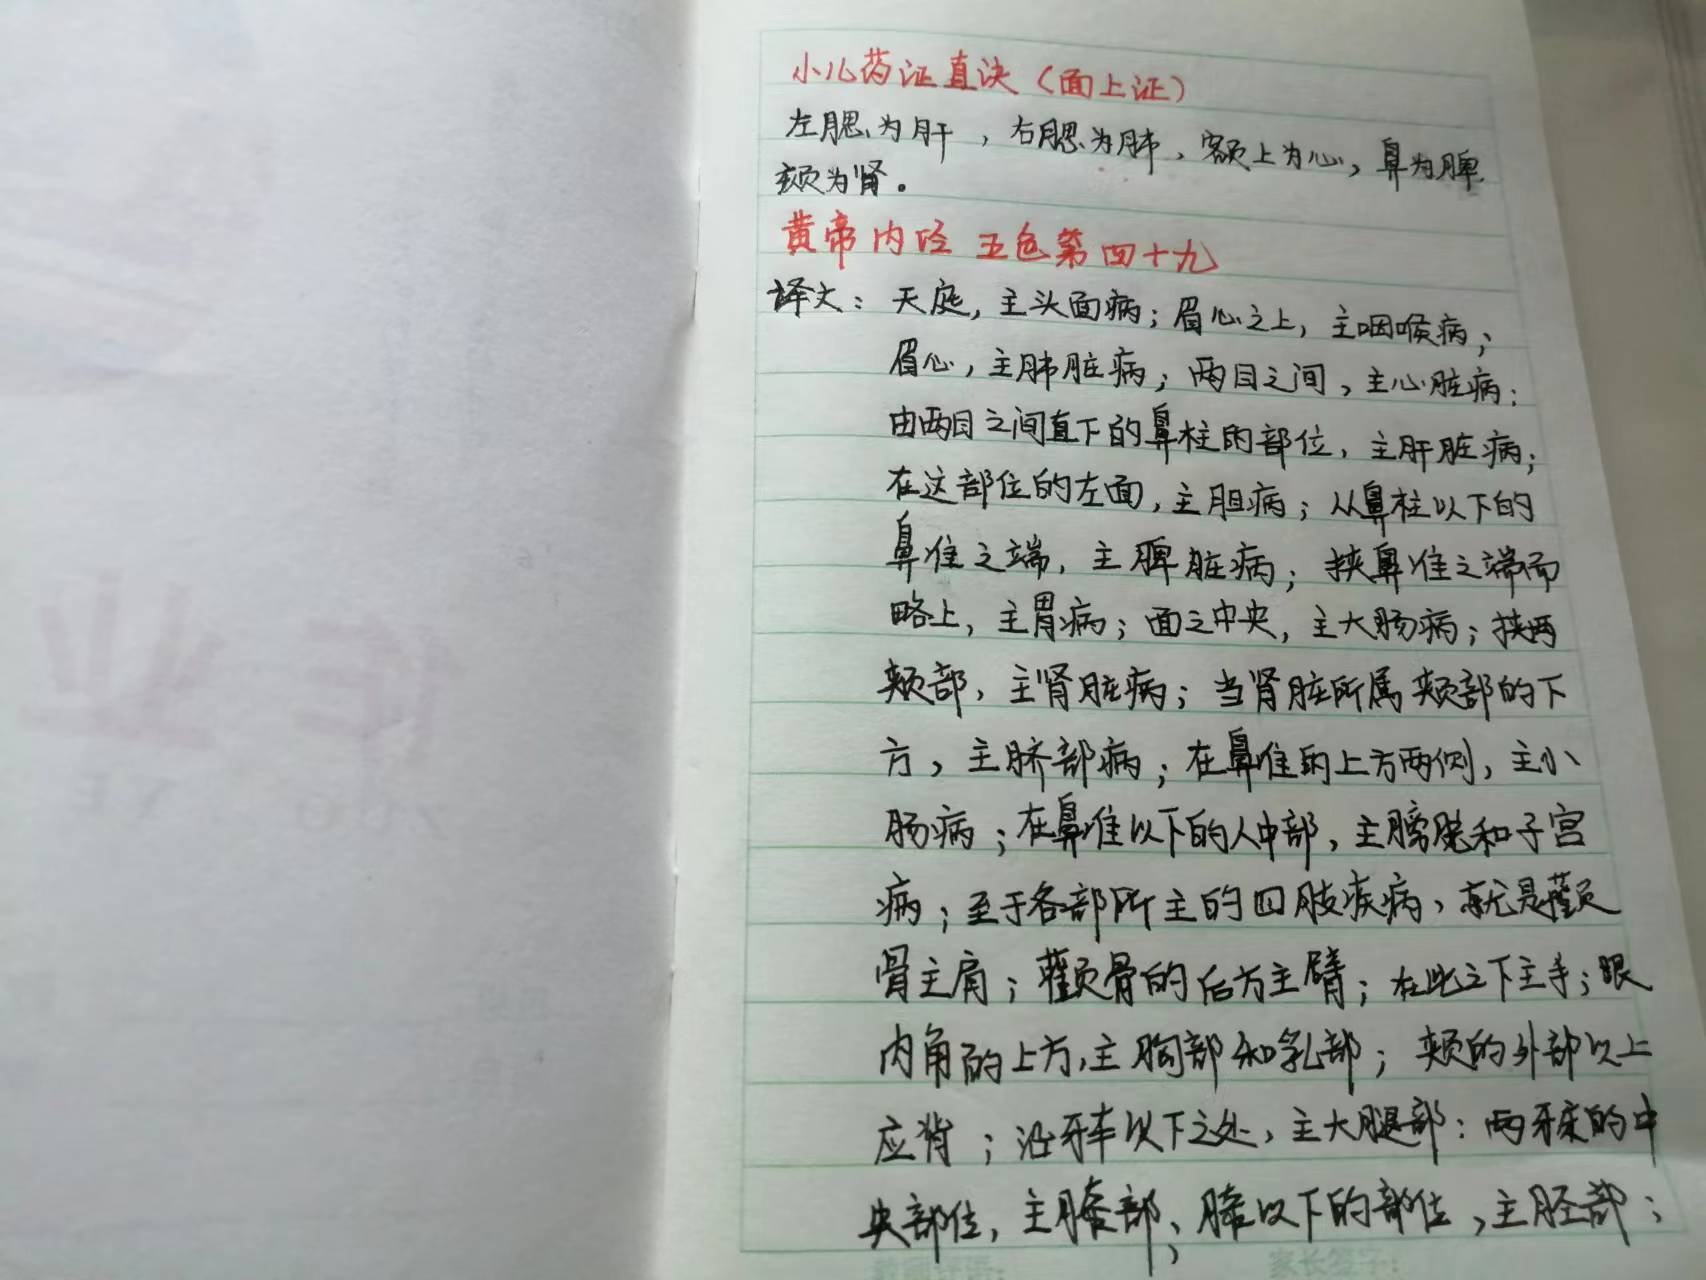 小儿药证直诀（面上证）
左腮为肝，右腮为肺，额上为心，鼻为脾，
颏为肾。
黄帝内径 五色第四十九
译文：天庭，主头面病；眉心之上，主咽喉病；
眉心，主肺脏病；两目之间，主心脏病；
由两目之间直下的鼻柱的部位，主肝脏病；
在这部位的左面，主胆病；从鼻柱以下的
鼻准之端，主脾脏病；挟鼻准之端而
略上，主胃病；面之中央，主大肠病；挟两
颊部，主肾脏病；当肾脏所属颊部的下
方，主脐部病；在鼻准的上方两侧，主小
肠病；在鼻准以下的人中部，主膀胱和子宫
病；至于各部所主的四肢疾病，就是颧
骨主肩；颧骨的后方主臂；在此之下主手；眼
内角的上方，主胸部和乳部；颊的外部以上
应背；沿牙车以下之处，主大腿部：两牙床的中
央部位，主膝部；膝以下的部位，主胫部；
家长签字：